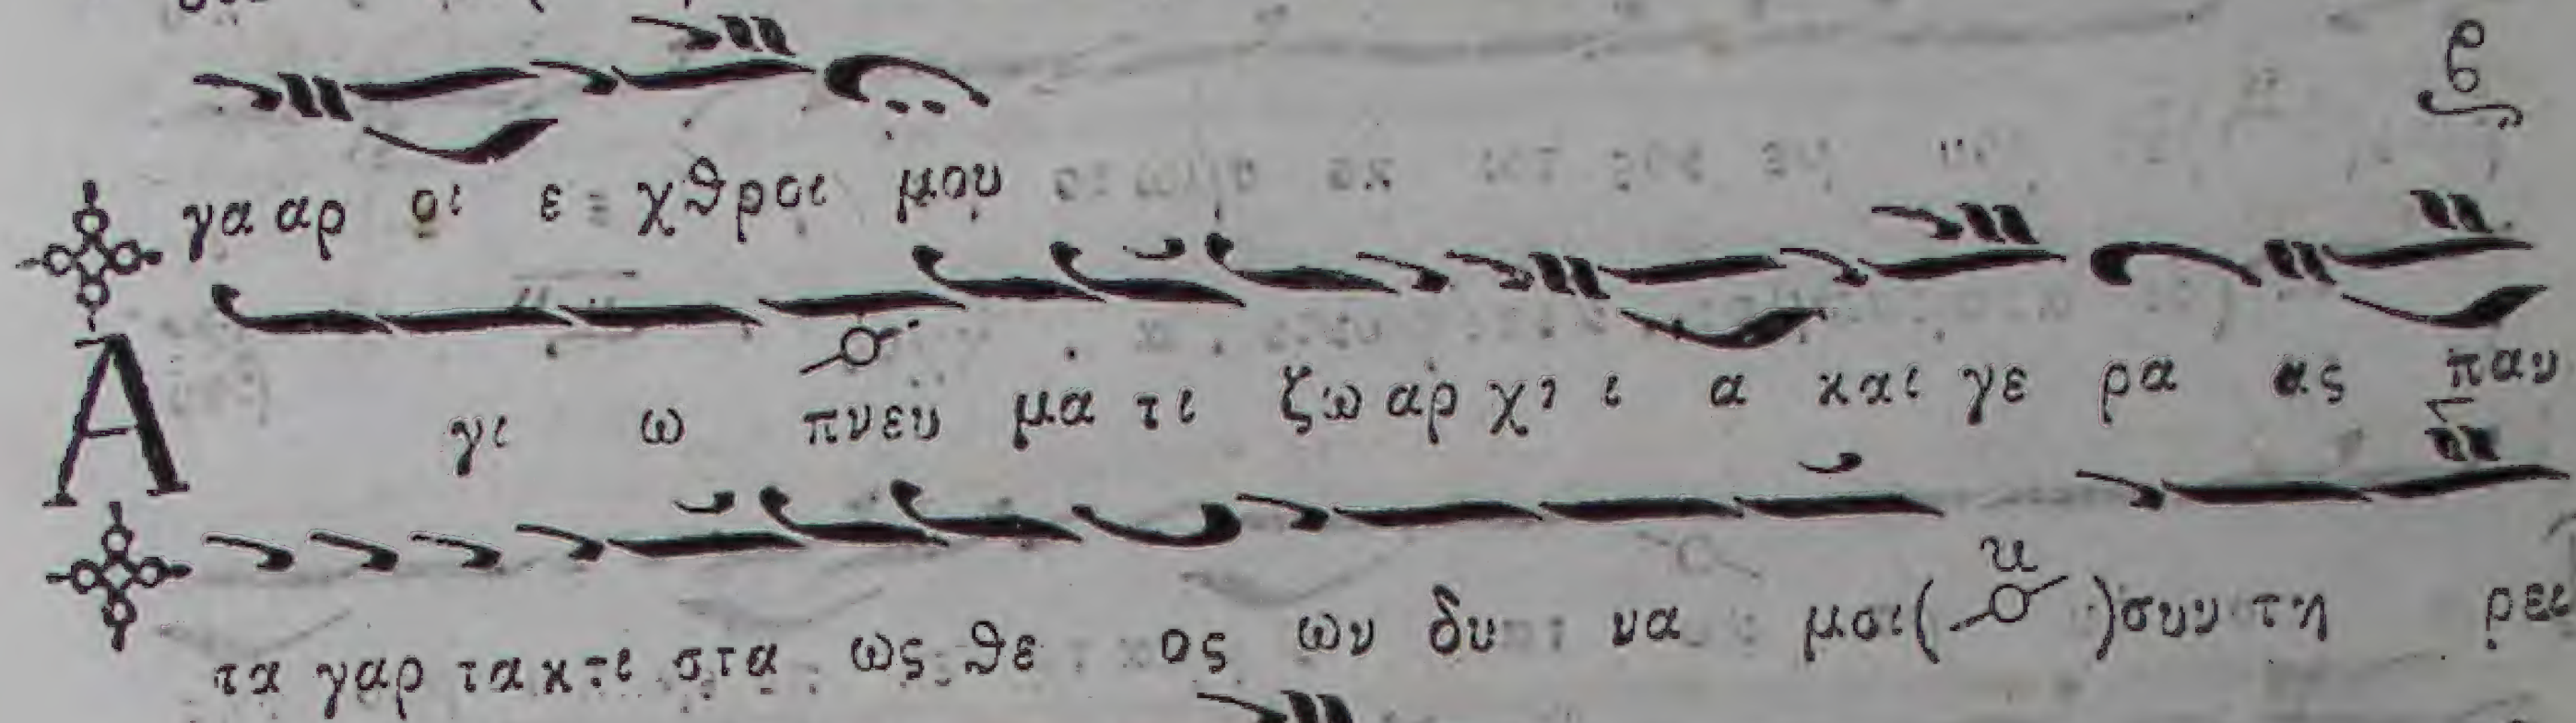 γα αρ οι ε χθροι μου
Α γι ω πνευ μα τι ζω αρ χι ι α και γε ρα ας παν
τα γαρ τα κτι στα ως θε ος ων δυ να μοι ( ϰ ) συν τη ρει